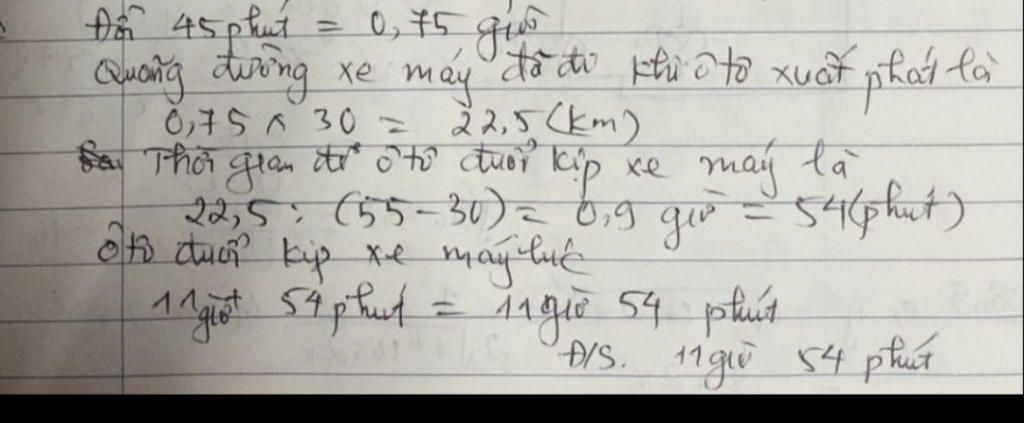 Đổi 45 phút = 0,75 giờ
Quãng đường xe máy đã đi khi ô tô xuất phát là
0,75 x 30 = 22,5 (km)
Thời gian để ô tô đuổi kịp xe máy là
22,5 : (55 - 30) = 0,9 giờ = 54 (phút)
Ô tô đuổi kịp xe máy lúc
11 giờ + 54 phút = 11 giờ 54 phút
Đ/S. 11 giờ 54 phút